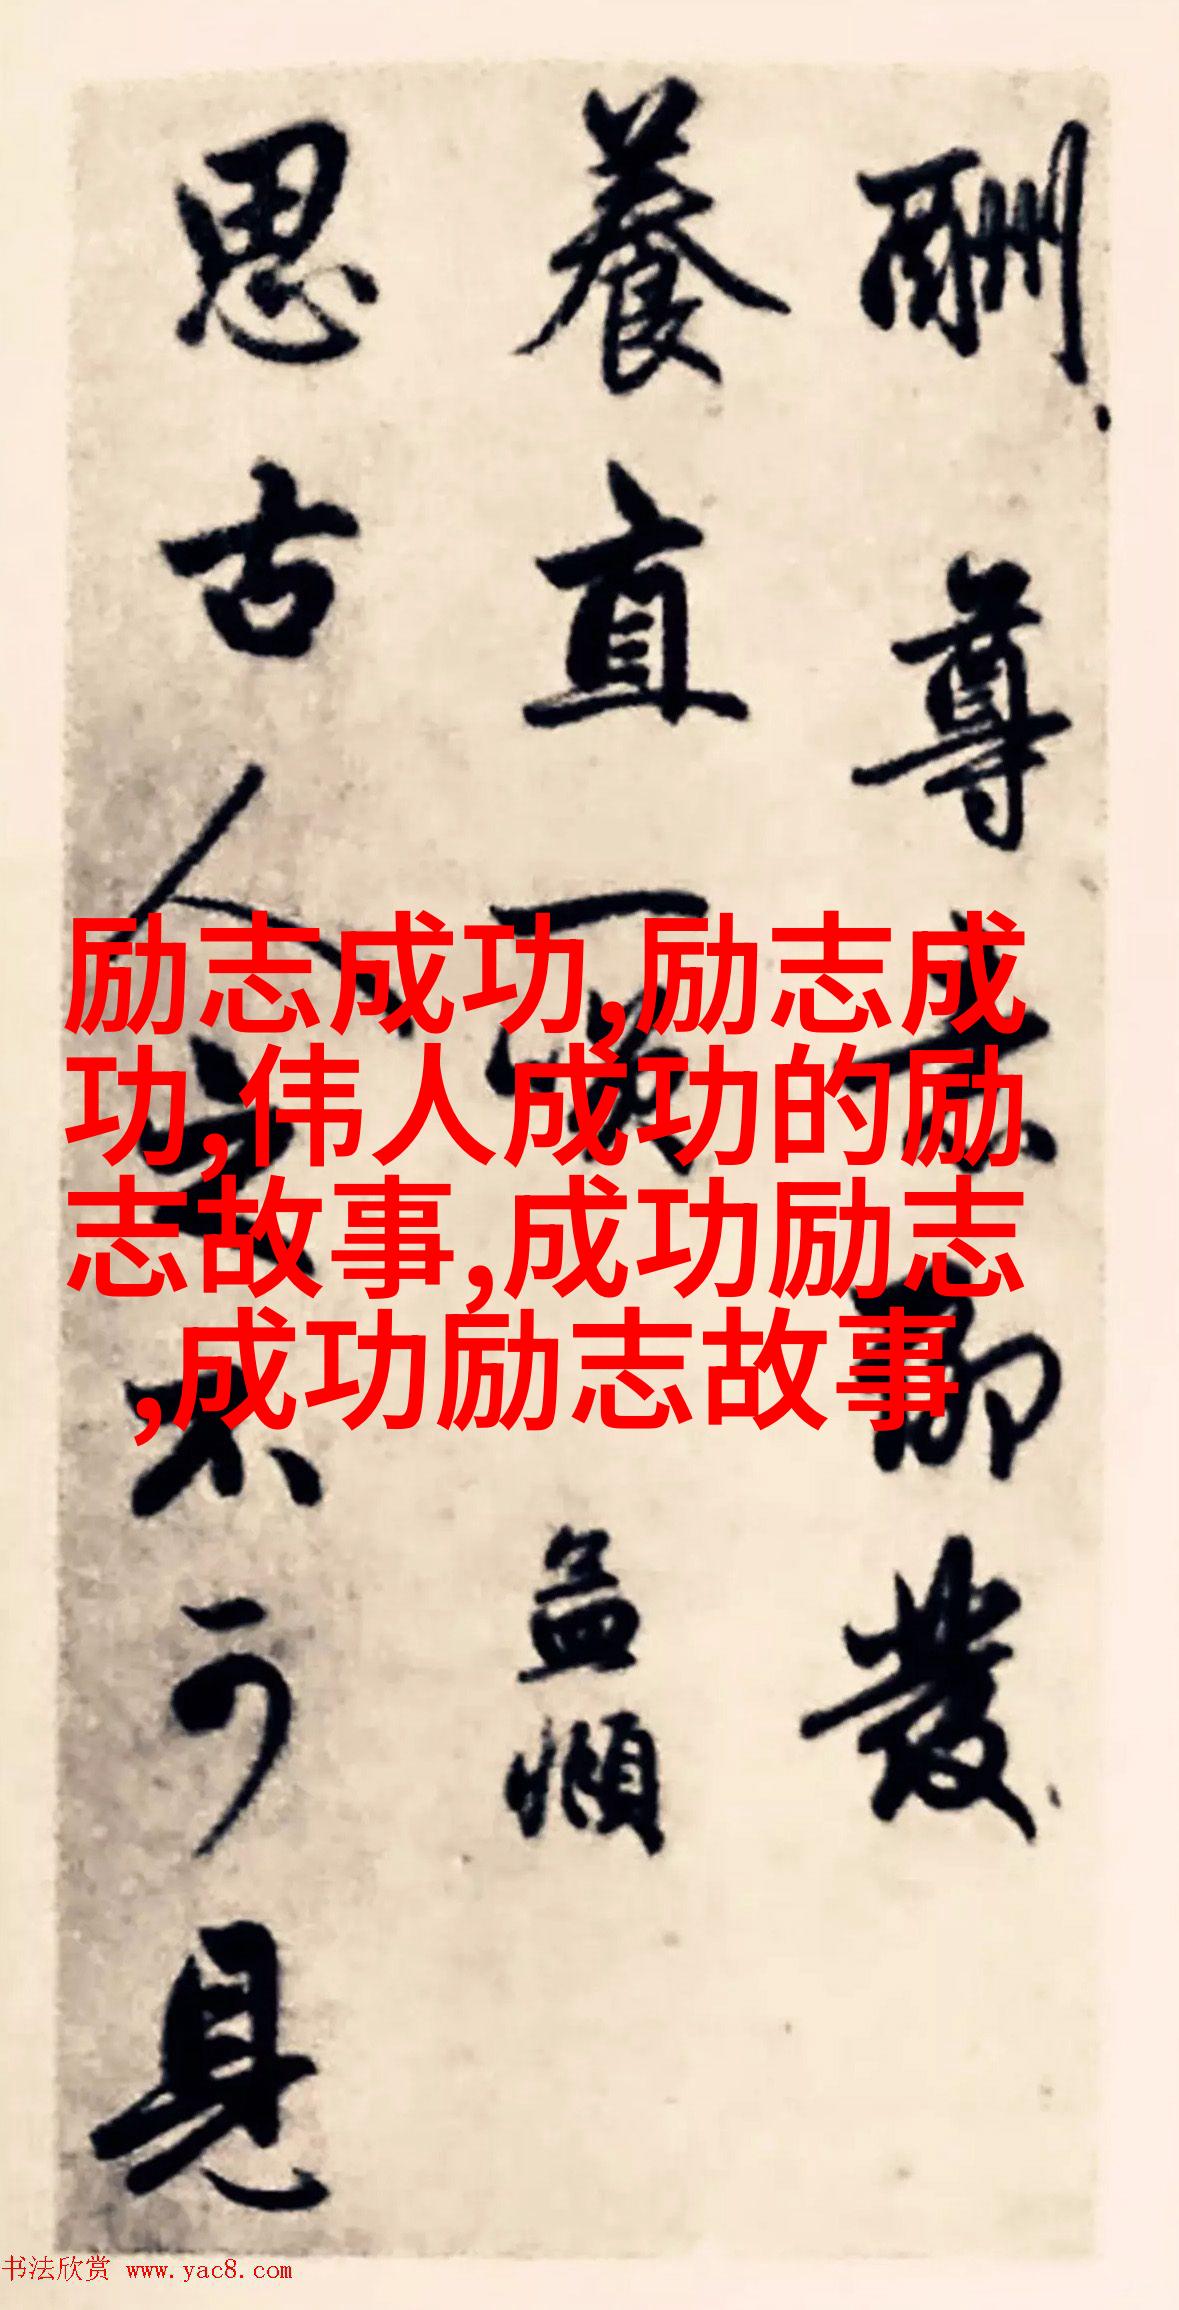 酬尊素聊發
養直一男孟頫
思古人之不可見
励志成功,励志成
功,伟人成功的励
志故事,成功励志
,成功励志故事
书法欣赏 www.yac8.com